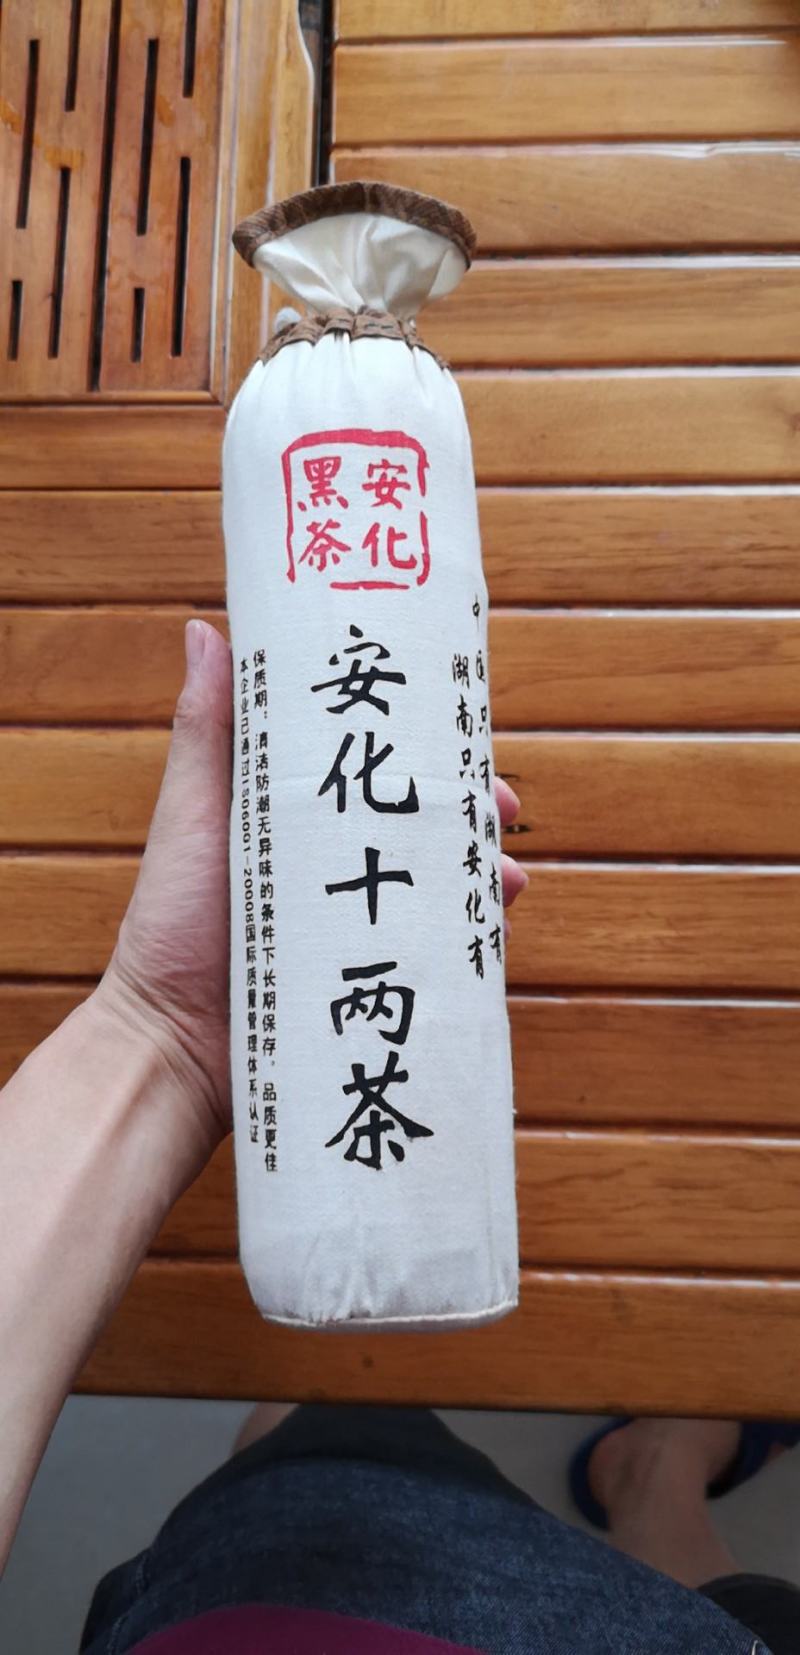 安化
黑茶
安化十两茶
中国只有湖南有
湖南只有安化有
保质期：清洁防潮无异味的条件下长期保存。品质更佳
本企业已通过ISO6001-20008国际质量管理体系认证